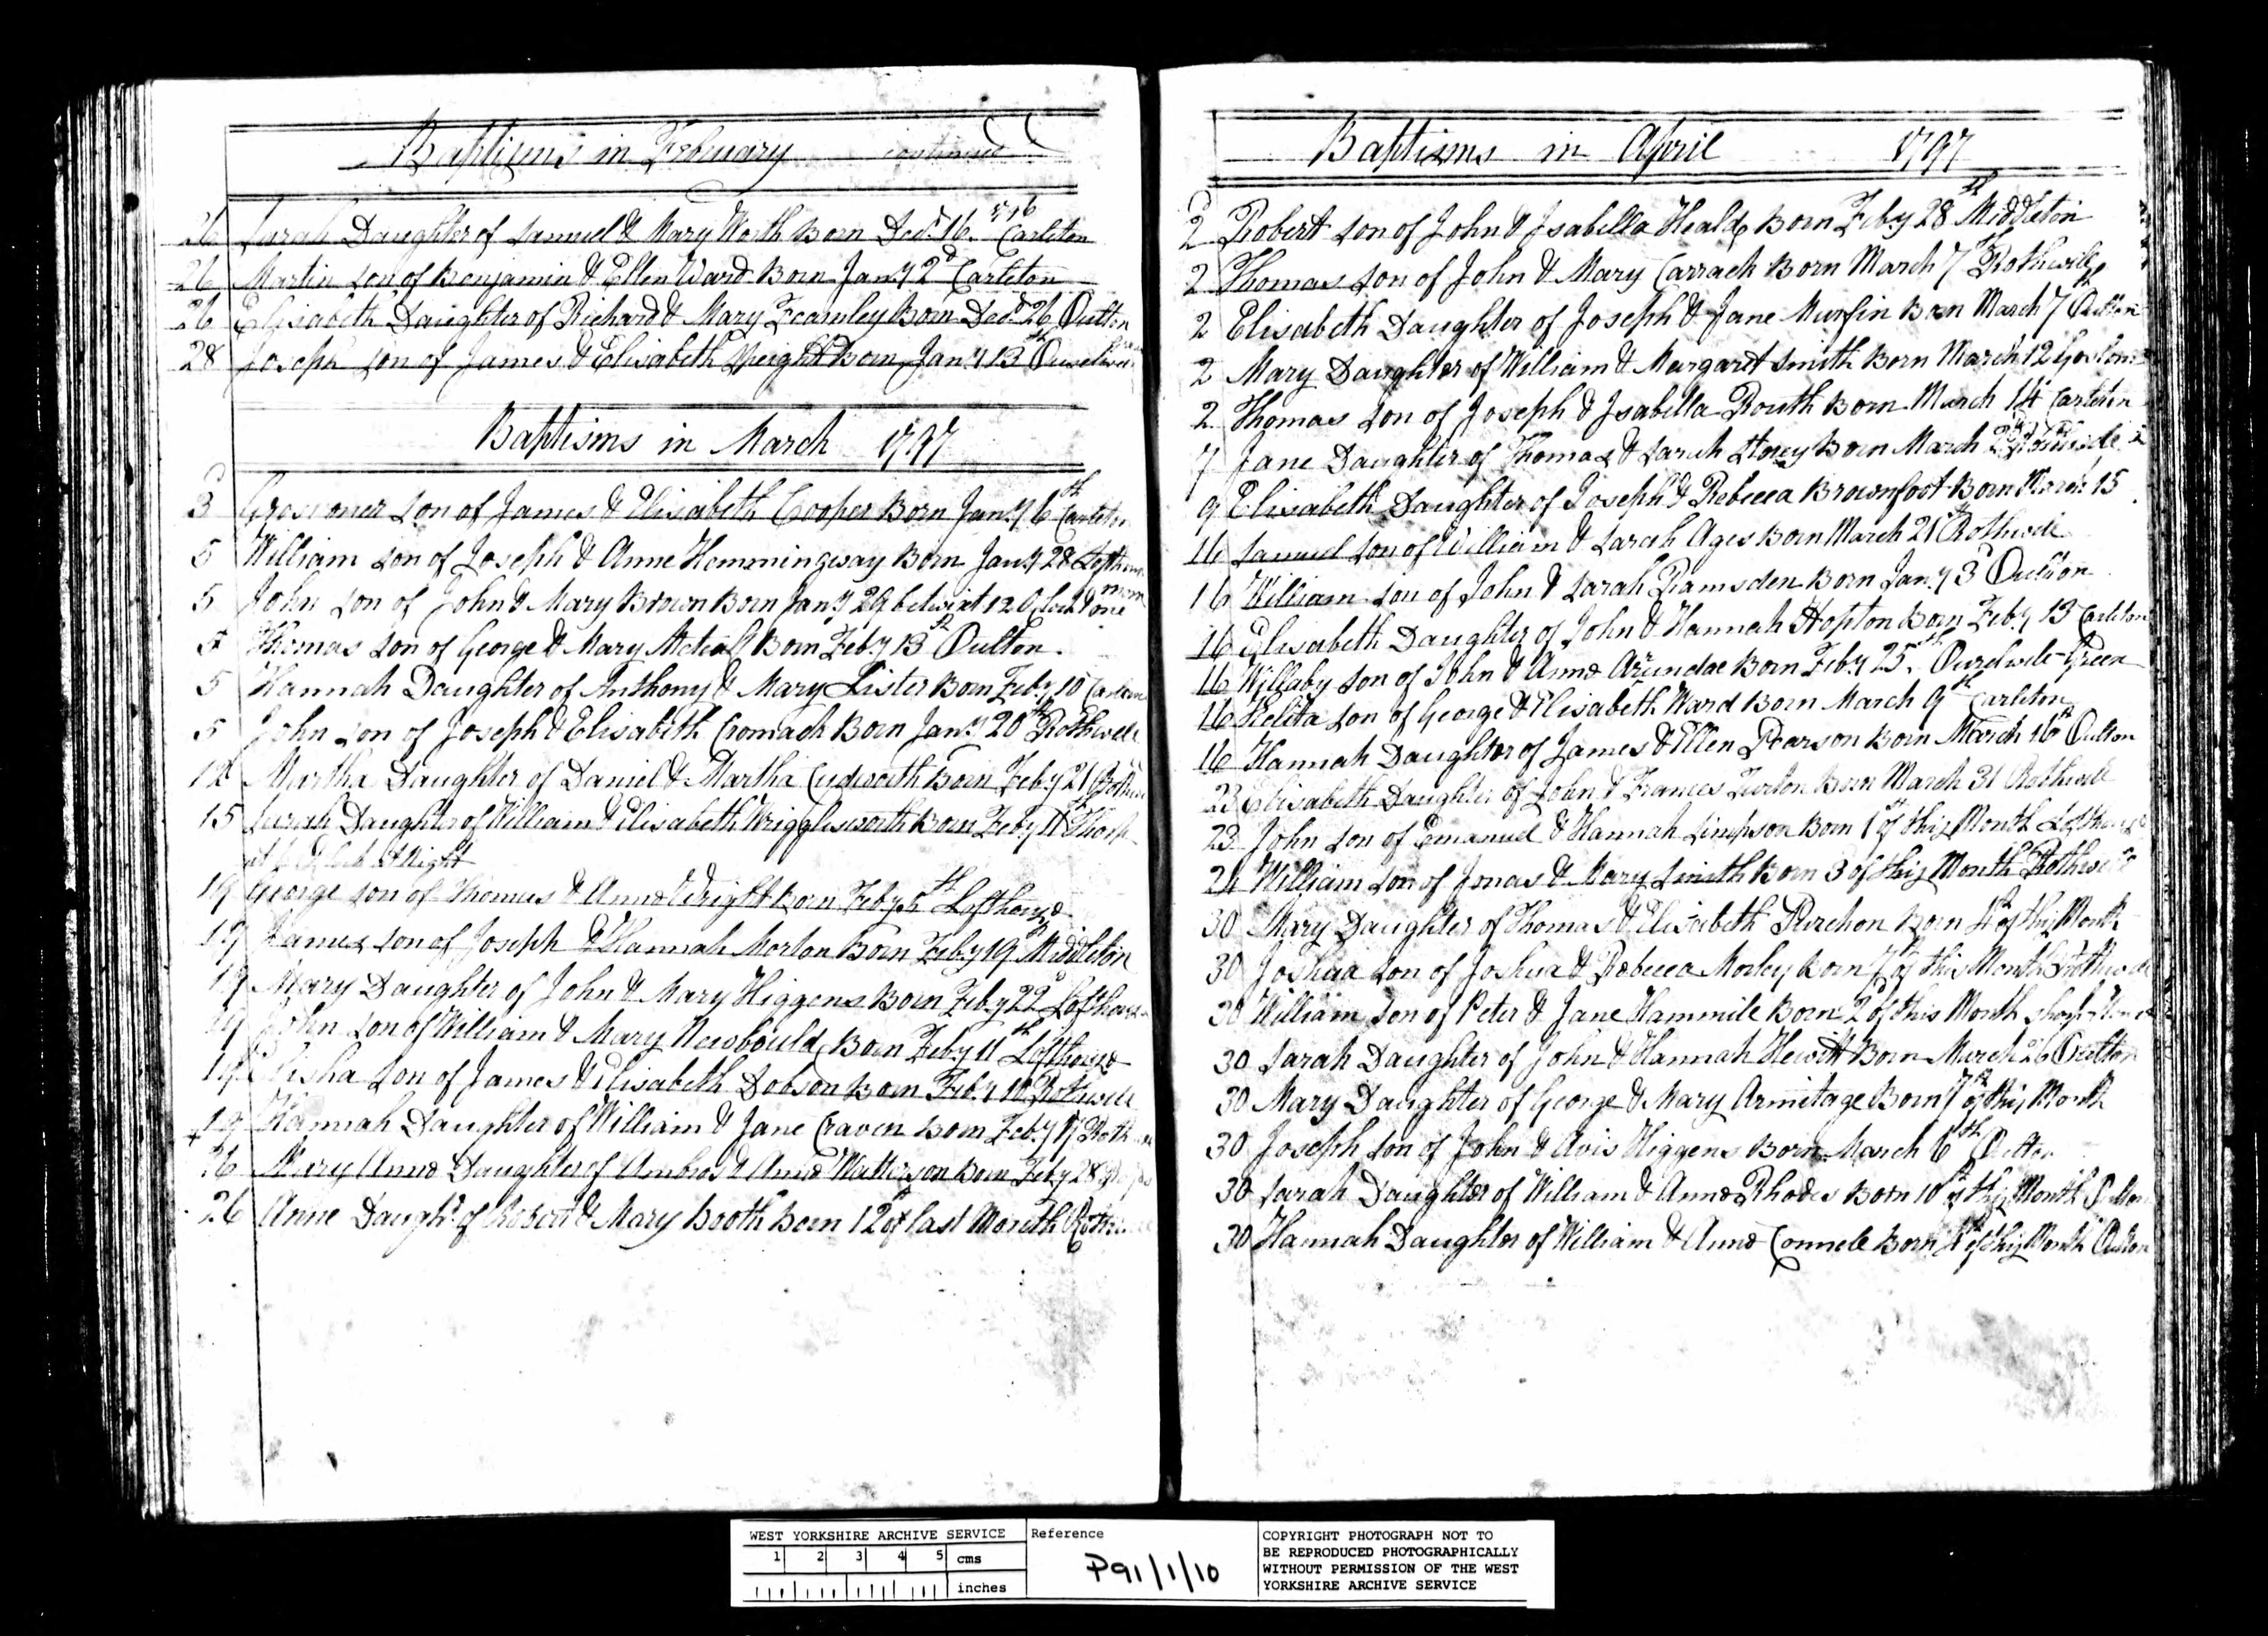 Baptisms in Febuary continued
26 Sarah Daughter of Samuel & Mary Worth Born Decr 16th 1796 Carleton
26 Martin son of Benjamin & Ellen Ward Born Jany 2d Carleton
26 Elisabeth Daughter of Richard & Mary Fearnley Born Decr 26 Oulton
28 Joseph son of James & Elisabeth Speight Born Jany 13th
Baptisms in March 1797
3d Grosvoner son of James & Elisabeth Cooper Born Jany 6th Carleton
5 William son of Joseph & Anne Hemmingway Born Jany 28
5 John son of John & Mary Brown Born Jany 29 betwixt 12 Oclock & one
5 Thomas son of George & Mary Born Feby 13th Oulton
5 Hannah Daughter of Anthony & Mary Lister Born Feby 10 Carleton
5 John son of Joseph & Elisabeth Cromack Born Jany 20th Rothwell
12 Martha Daughter of Daniel & Martha Cudworth Born Feby 21
15 Sarah Daughter of William & Elisabeth Wrigglesworth Born Feby 11th Thorp
at Oclock at Night
19 George son of Thomas & Anne Wright Born Feby 5th Lofthouse
19 James son of Joseph & Hannah Morton Born Feby 19th Middleton
19 Mary Daughter of John & Mary Higgens Born Feby 22d Lofthouse
19 John son of William & Mary Newbould Born Feby 11th Lofthouse
19 Elisha son of James & Elisabeth Dobson Born Feby 10 Rothwell
19 Hannah Daughter of William & Jane Craven Born Feby 17
26 Mary Anne Daughter of Ambros & Anne Watterson Born Feby 28
26 Anne Daughr of Robert & Mary Booth Born 12 of last Month
Baptisms in April 1797
2d Robert son of John & Isabella Heald Born Feby 28th Middleton
2 Thomas son of John & Mary Carrack Born March 7th Rothwell
2 Elisabeth Daughter of Joseph & Jane Murfin Born March 7th Oulton
2 Mary Daughter of William & Margaret Smith Born March 12
2 Thomas son of Joseph & Isabella Routh Born March 14 Carleton
7 Jane Daughter of Thomas & Sarah Storey Born March
9 Elisabeth Daughter of Joseph & Rebecca Brownfoot Born March 15
16 Samuel son of William & Sarah Ages Born March 21st Rothwell
16 William son of John & Sarah Ramsden Born Jany 3d Oulton
16 Elisabeth Daughter of John & Hannah Hopton Born Feby 13 Carleton
16 Willaby son of John & Anne Arundae Born Feby 25th Ouzelwell Green
16 Kelita son of George & Elisabeth Ward Born March 9th Carleton
16 Hannah Daughter of James & Ellen Pearson Born March 16th Oulton
23 Elisabeth Daughter of John & Frances Turton Born March 31 Rothwell
23 John son of Emanuel & Hannah Simpson Born 1st of this Month Lofthouse
24 William son of Jonas & Mary Smith Born 3 of this Month Rothwell
30 Mary Daughter of Thomas & Elisabeth Born 4th of this Month
30 Joshua son of Joshua & Rebecca Morley Born 7th of this Month Rothwell
30 William son of Peter & Jane Hammill Born 2d of this Month
30 Sarah Daughter of John & Hannah Hewitt Born March 26 Oulton
30 Mary Daughter of George & Mary Armitage Born 7th of this Month
30 Joseph son of John & Avis Higgens Born March 6th Oulton
30 Sarah Daughter of William & Anne Rhodes Born 10th of this Month Oulton
30 Hannah Daughter of William & Anne Connell Born 4th of this Month Oulton
WEST YORKSHIRE ARCHIVE SERVICE
1 2 3 4 5 cms
inches
Reference
P91/1/10
COPYRIGHT PHOTOGRAPH NOT TO
BE REPRODUCED PHOTOGRAPHICALLY
WITHOUT PERMISSION OF THE WEST
YORKSHIRE ARCHIVE SERVICE